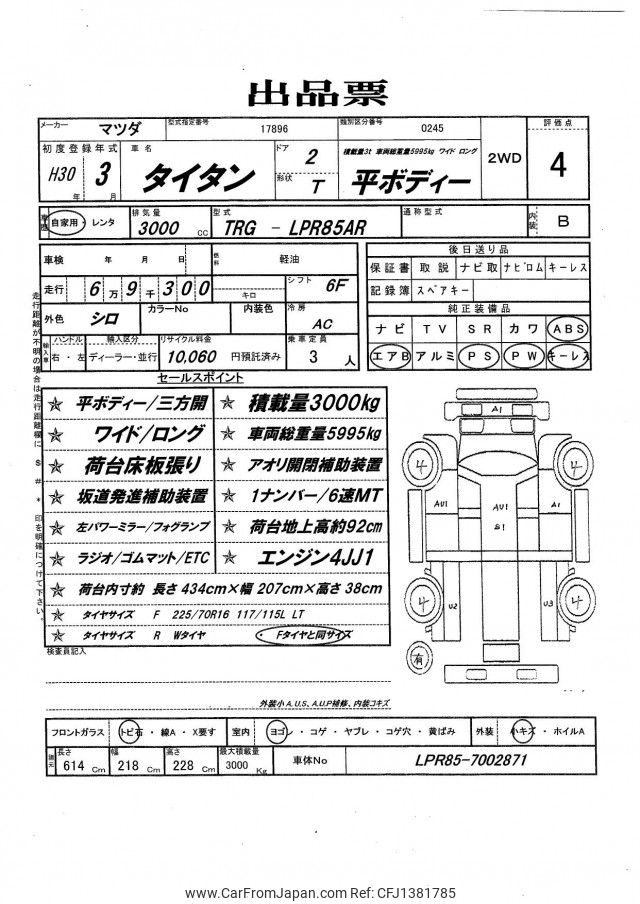 出品票
メーカー マツダ 型式指定番号 17896 類別区分番号 0245 評価点
初度登録年式 H30年 3月 車名 タイタン ドア 2 形状 T 積載量3t 車両総重量5995kg ワイド ロング 平ボディー 2WD 4
車歴 自家用・レンタ 排気量 3000 CC 型式 TRG - LPR85AR 通称型式 内装 B
車検 年 月 日 燃料 軽油
走行 6万9千300 キロ シフト 6F
外色 シロ カラーNo 内装色 冷房 AC
輸入車 ハンドル 右・左 輸入区分 ディーラー・並行 リサイクル料金 10,060 円預託済み 乗車定員 3人
後日送り品
保証書 取説 ナビ取 ナビロム キーレス
記録簿 スペアキー
純正装備品
ナビ TV SR カワ ABS
エアB アルミ PS PW キーレス
走行距離が不明の場合は走行距離欄に $ # * 印を明確につけて下さい。
セールスポイント
☆ 平ボディー/三方開 ☆ 積載量3000kg
☆ ワイド/ロング ☆ 車両総重量5995kg
☆ 荷台床板張り ☆ アオリ開閉補助装置
☆ 坂道発進補助装置 ☆ 1ナンバー/6速MT
☆ 左パワーミラー/フォグランプ ☆ 荷台地上高約92cm
☆ ラジオ/ゴムマット/ETC ☆ エンジン4JJ1
☆ 荷台内寸約 長さ 434cm×幅 207cm×高さ 38cm
☆ タイヤサイズ F 225/70R16 117/115L LT
☆ タイヤサイズ R Wタイヤ ・Fタイヤと同サイズ
A1
4 4
AU1 AU1 A1
S1
4 4
U2 U3
有
検査員記入
外装小A.U.S、A.U.P補修、内装コキズ
フロントガラス トビ石・線A・X要す 室内 ヨゴレ・コゲ・ヤブレ・コゲ穴・黄ばみ 外装 小キズ・ホイルA
諸元 長さ 614 Cm 幅 218 Cm 高さ 228 Cm 最大積載量 3000 Kg 車体No LPR85-7002871
www.CarFromJapan.com Ref: CFJ1381785